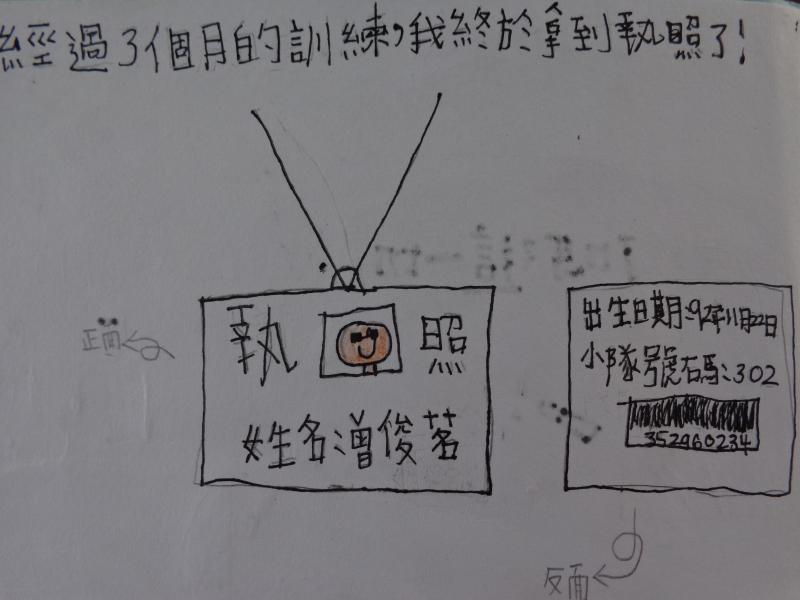 經過3個月的訓練,我終於拿到執照了!
執 照
姓名:曾俊茗
正面
出生日期:92年11月22日
小隊號碼:302
352960234
反面